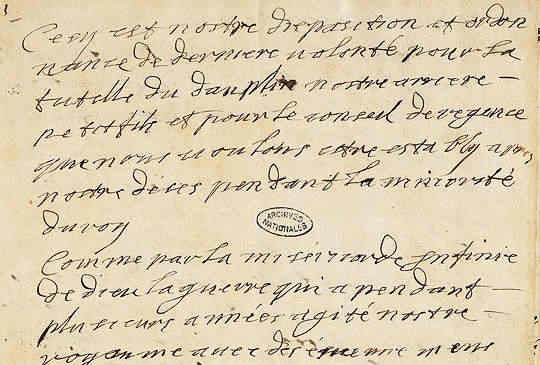 Cecy est nostre disposition et ordon
nance de derniere uolonté pour la
tutelle du dauphin nostre arriere
petit fils et pour le conseil de regence
que nous uoulons estre estably apres
nostre deces pendant la minorité
du roy
ARCHIVES
NATIONALES
Comme par la misericorde infinie
de dieu la guerre qui a pendant
plusieurs années agité nostre
royaume auec des euenemens